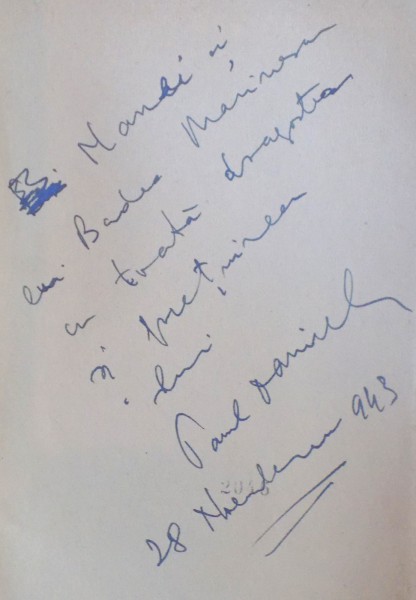 Mandi și
lui Badea Marinescu
cu toată dragostea
și prețuirea
lui
Paul Daniel
28 Noiembrie 943